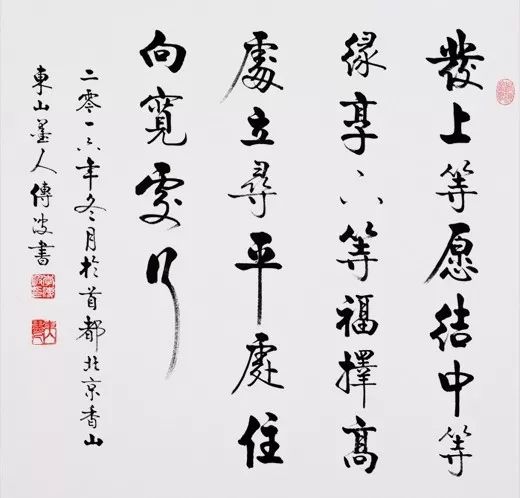 發上等愿結中等
緣享下等福擇高
處立尋平處住
向寬處行
二零一六年冬月於首都北京香山
東山墨人傅波書